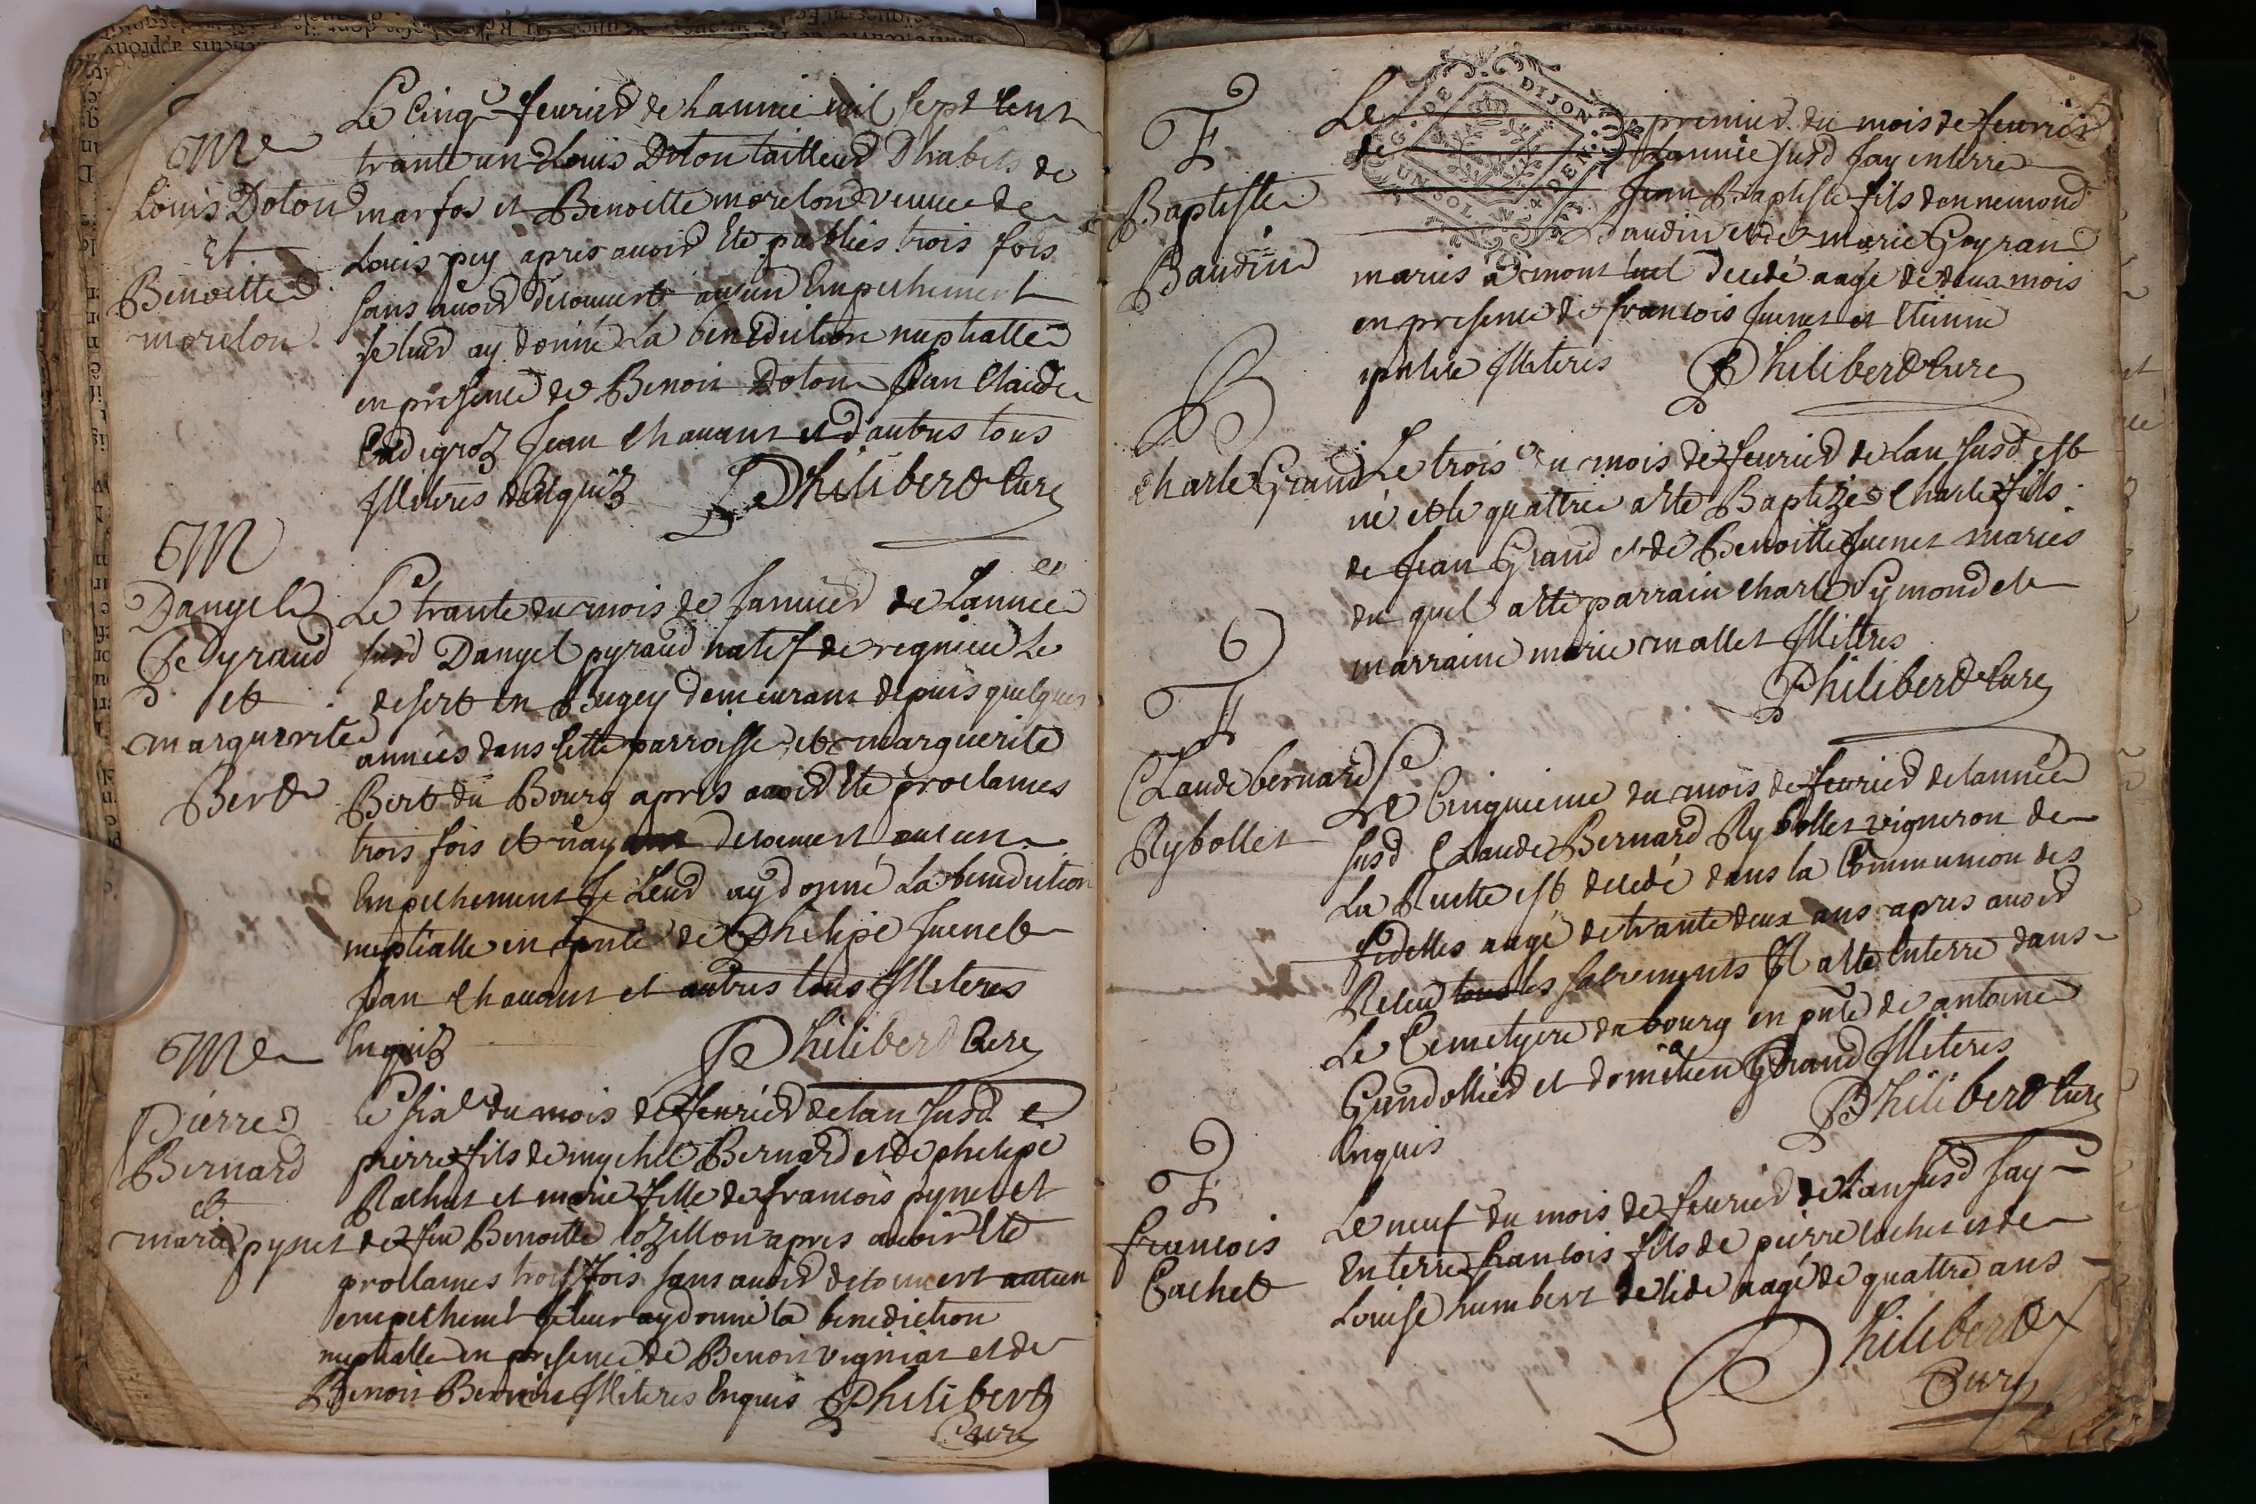 M
Louis Doton
Et
Benoitte
morelon
Le cinq feurier de lannie mil sept cent
trante un Louis Doton tailleur Dhabits de
marfos et Benoitte morelon veuue de
Louis pey apres auoir Eté publiés trois fois
sans auoir decouuert aucun Empechement
Je leur ay donné La benediction nuptialle
en presence de Benoit Doton Jean Claude
Jean Chauant et d'autres tous
Illiteres Enquis Philibert Curé
M
Dangel
Peyraud
et
marguerite
Bert
Le trante du mois de Januier de Lannee
susd Dangel pyraud natif de regnieu Le
desert en Bugey demeurant depuis quelques
années dans Cette parroisse et marguerite
Bert du Bourg apres auoir Eté proclames
trois fois et nayant decouuert aucun
Empechement Je Leur ay donné La benediction
nuptialle en pnte de Phelipe Juenet
Jean Chauant et autres tous Illiteres
Enquis Philibert Curé
M
Pierre
Bernard
et
marie pynet
Le six du mois de feurier de lan susd
pierre fils de mychel Bernard et de phelipe
Rachat et marie fille de francois pynet et
de feu Benoitte apres auoir Eté
proclames trois fois sans auoir decouuert aucun
empechemt Je leur ay donné la benediction
nuptialle en presence de Benoit vigniat et de
Benoit Illiteres Enquis Philibert
Curé
F
Baptiste
Baudin
G. DE DIJON
UN SOL
Le premier du mois de feurier
de Lannie susd Jay enterre
Jean Baptiste fils dennemond
Baudin et de marie Goyran
maries a montluel decedé aagé de deux mois
en presence de francois Juenet et Etienne
Illiteres Philibert Curé
B
Charle Grand
Le trois du mois de feurier de lan susd est
né et le quattrie a été Baptizé Charle fils
de Jean Grand et de Benoitte Juenet maries
du quel a été parrain Charle Symond et
marraine marie mallet Illittres
Philibert Curé
F
Claude bernard
Rybollet
Le Cinquieme du mois de feurier de lannee
susd Claude Bernard Rybollet vigneron de
La Ruette est decedé dans la Communion des
fidelles aagé de trante deux ans apres auoir
Receu tous les sacrements Il a été Enterre dans
Le Cemetyere du bourg en pnte de antoine
Gundollier et domitien Grand Illiteres
Enquis Philibert Curé
F
francois
Cachet
Le neuf du mois de feurier de Lan susd Jay
Enterre francois fils de pierre Cachet et de
Louise humbert decede aagé de quattre ans
Philibert
Curé